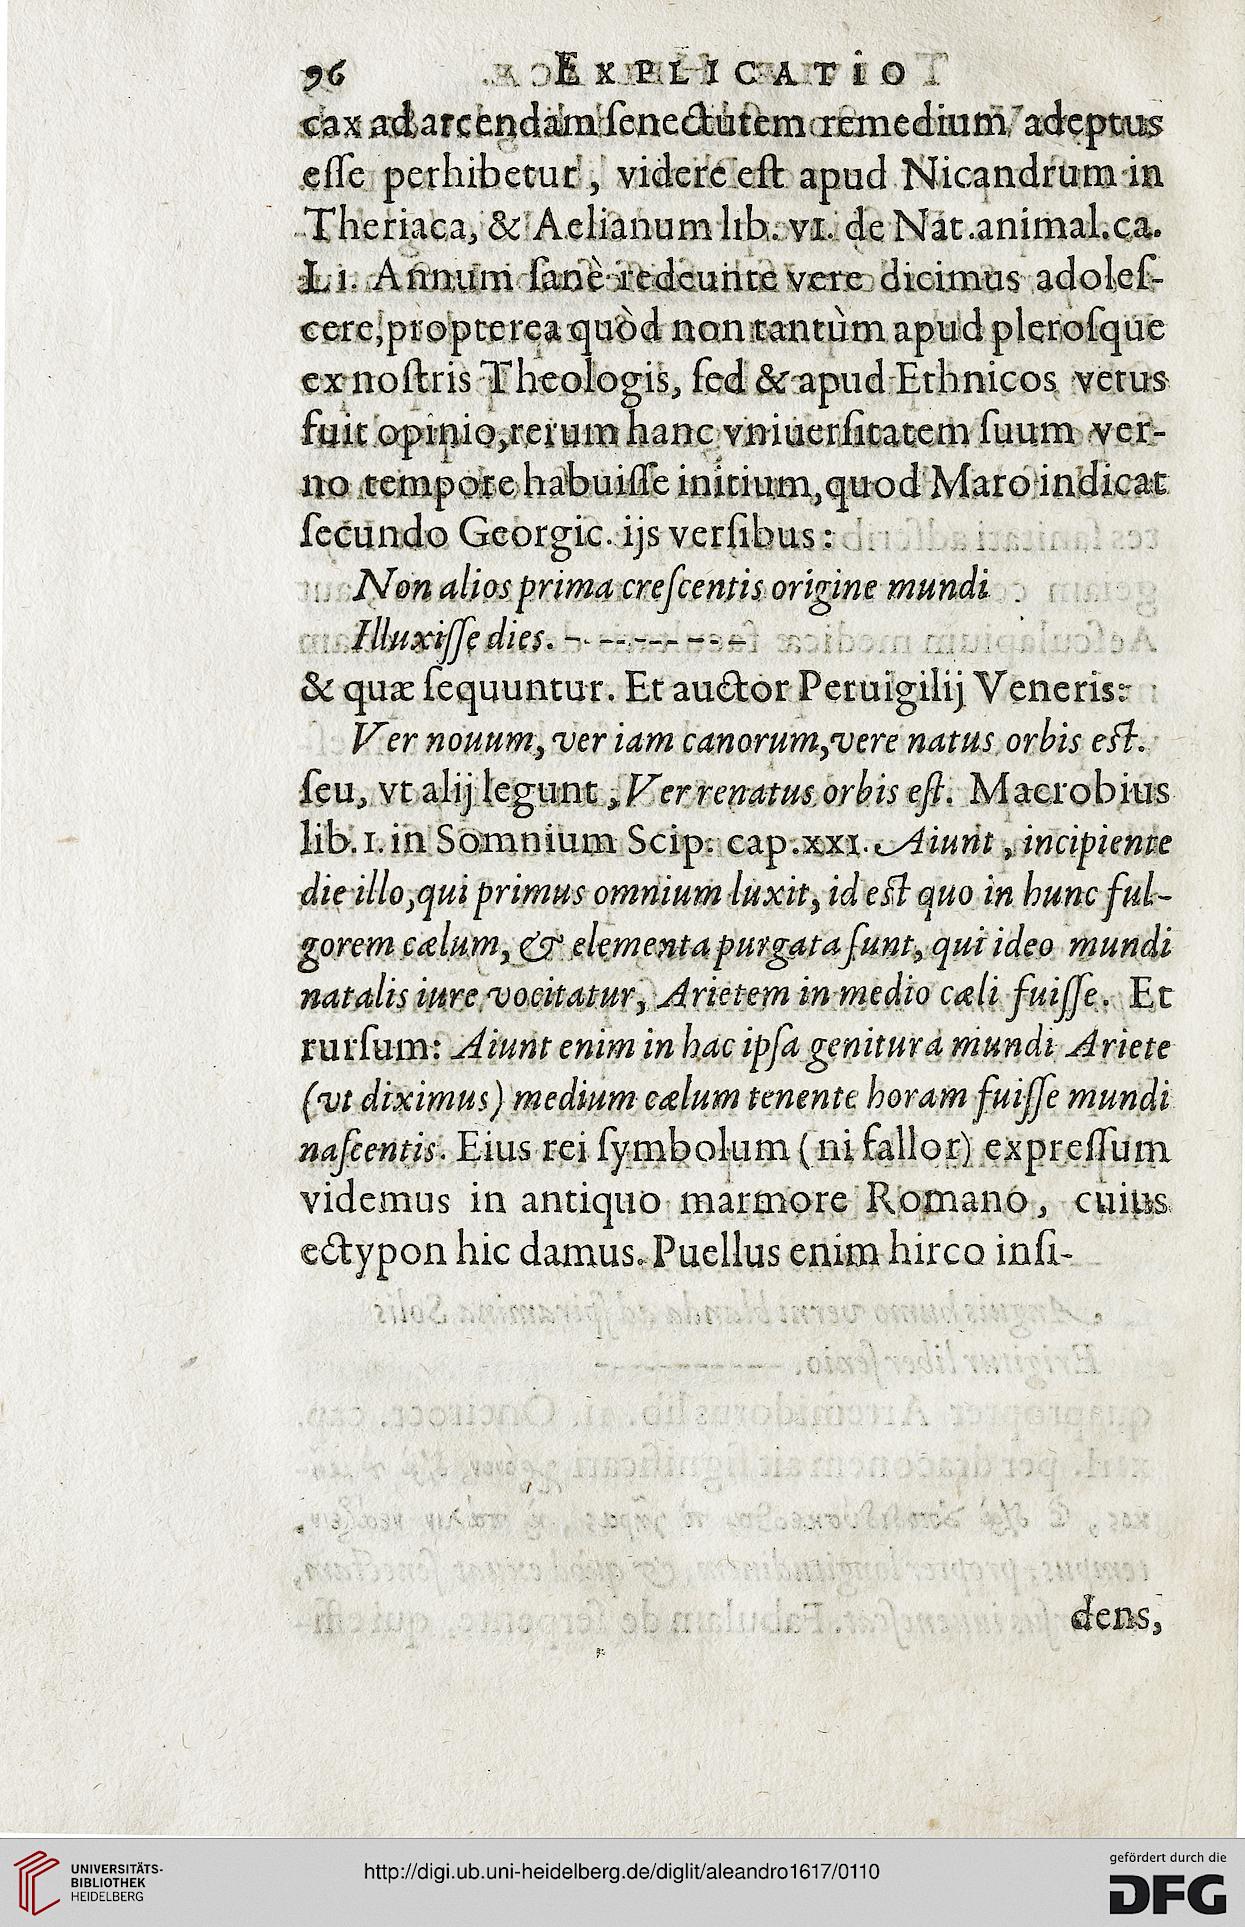 96 EXPLICATIO
cax ad arcendam ſenectutem remedium adeptus
eſſe perhibetur, videre eſt apud Nicandrum in
Theriaca, & Aelianum lib. vi. de Nat. animal. ca.
Li. Annum ſanè redeunte vere dicimus adoleſ-
cere, propterea quòd non tantùm apud pleroſque
ex noſtris Theologis, ſed & apud Ethnicos vetus
fuit opinio, rerum hanc vniuerſitatem ſuum ver-
no tempore habuiſſe initium, quod Maro indicat
ſecundo Georgic. ijs verſibus:
Non alios prima creſcentis origine mundi
Illuxiſſe dies. - - - - - - - - -
& quæ ſequuntur. Et auctor Peruigilij Veneris:
Ver nouum, ver iam canorum, vere natus orbis eſt.
ſeu, vt alij legunt, Ver renatus orbis eſt. Macrobius
lib. I. in Somnium Scip. cap. xxI. Aiunt, incipiente
die illo, qui primus omnium luxit, id eſt quo in hunc ful-
gorem cælum, & elementa purgata ſunt, qui ideo mundi
natalis iure vocitatur, Arietem in medio cæli fuiſſe. Et
rurſum: Aiunt enim in hac ipſa genitura mundi Ariete
(vt diximus) medium cælum tenente horam fuiſſe mundi
naſcentis. Eius rei ſymbolum (ni fallor) expreſſum
videmus in antiquo marmore Romano, cuius
ectypon hic damus. Puellus enim hirco inſi-
dens,
UNIVERSITÄTS-
BIBLIOTHEK
HEIDELBERG
http://digi.ub.uni-heidelberg.de/diglit/aleandro1617/0110
gefördert durch die
DFG